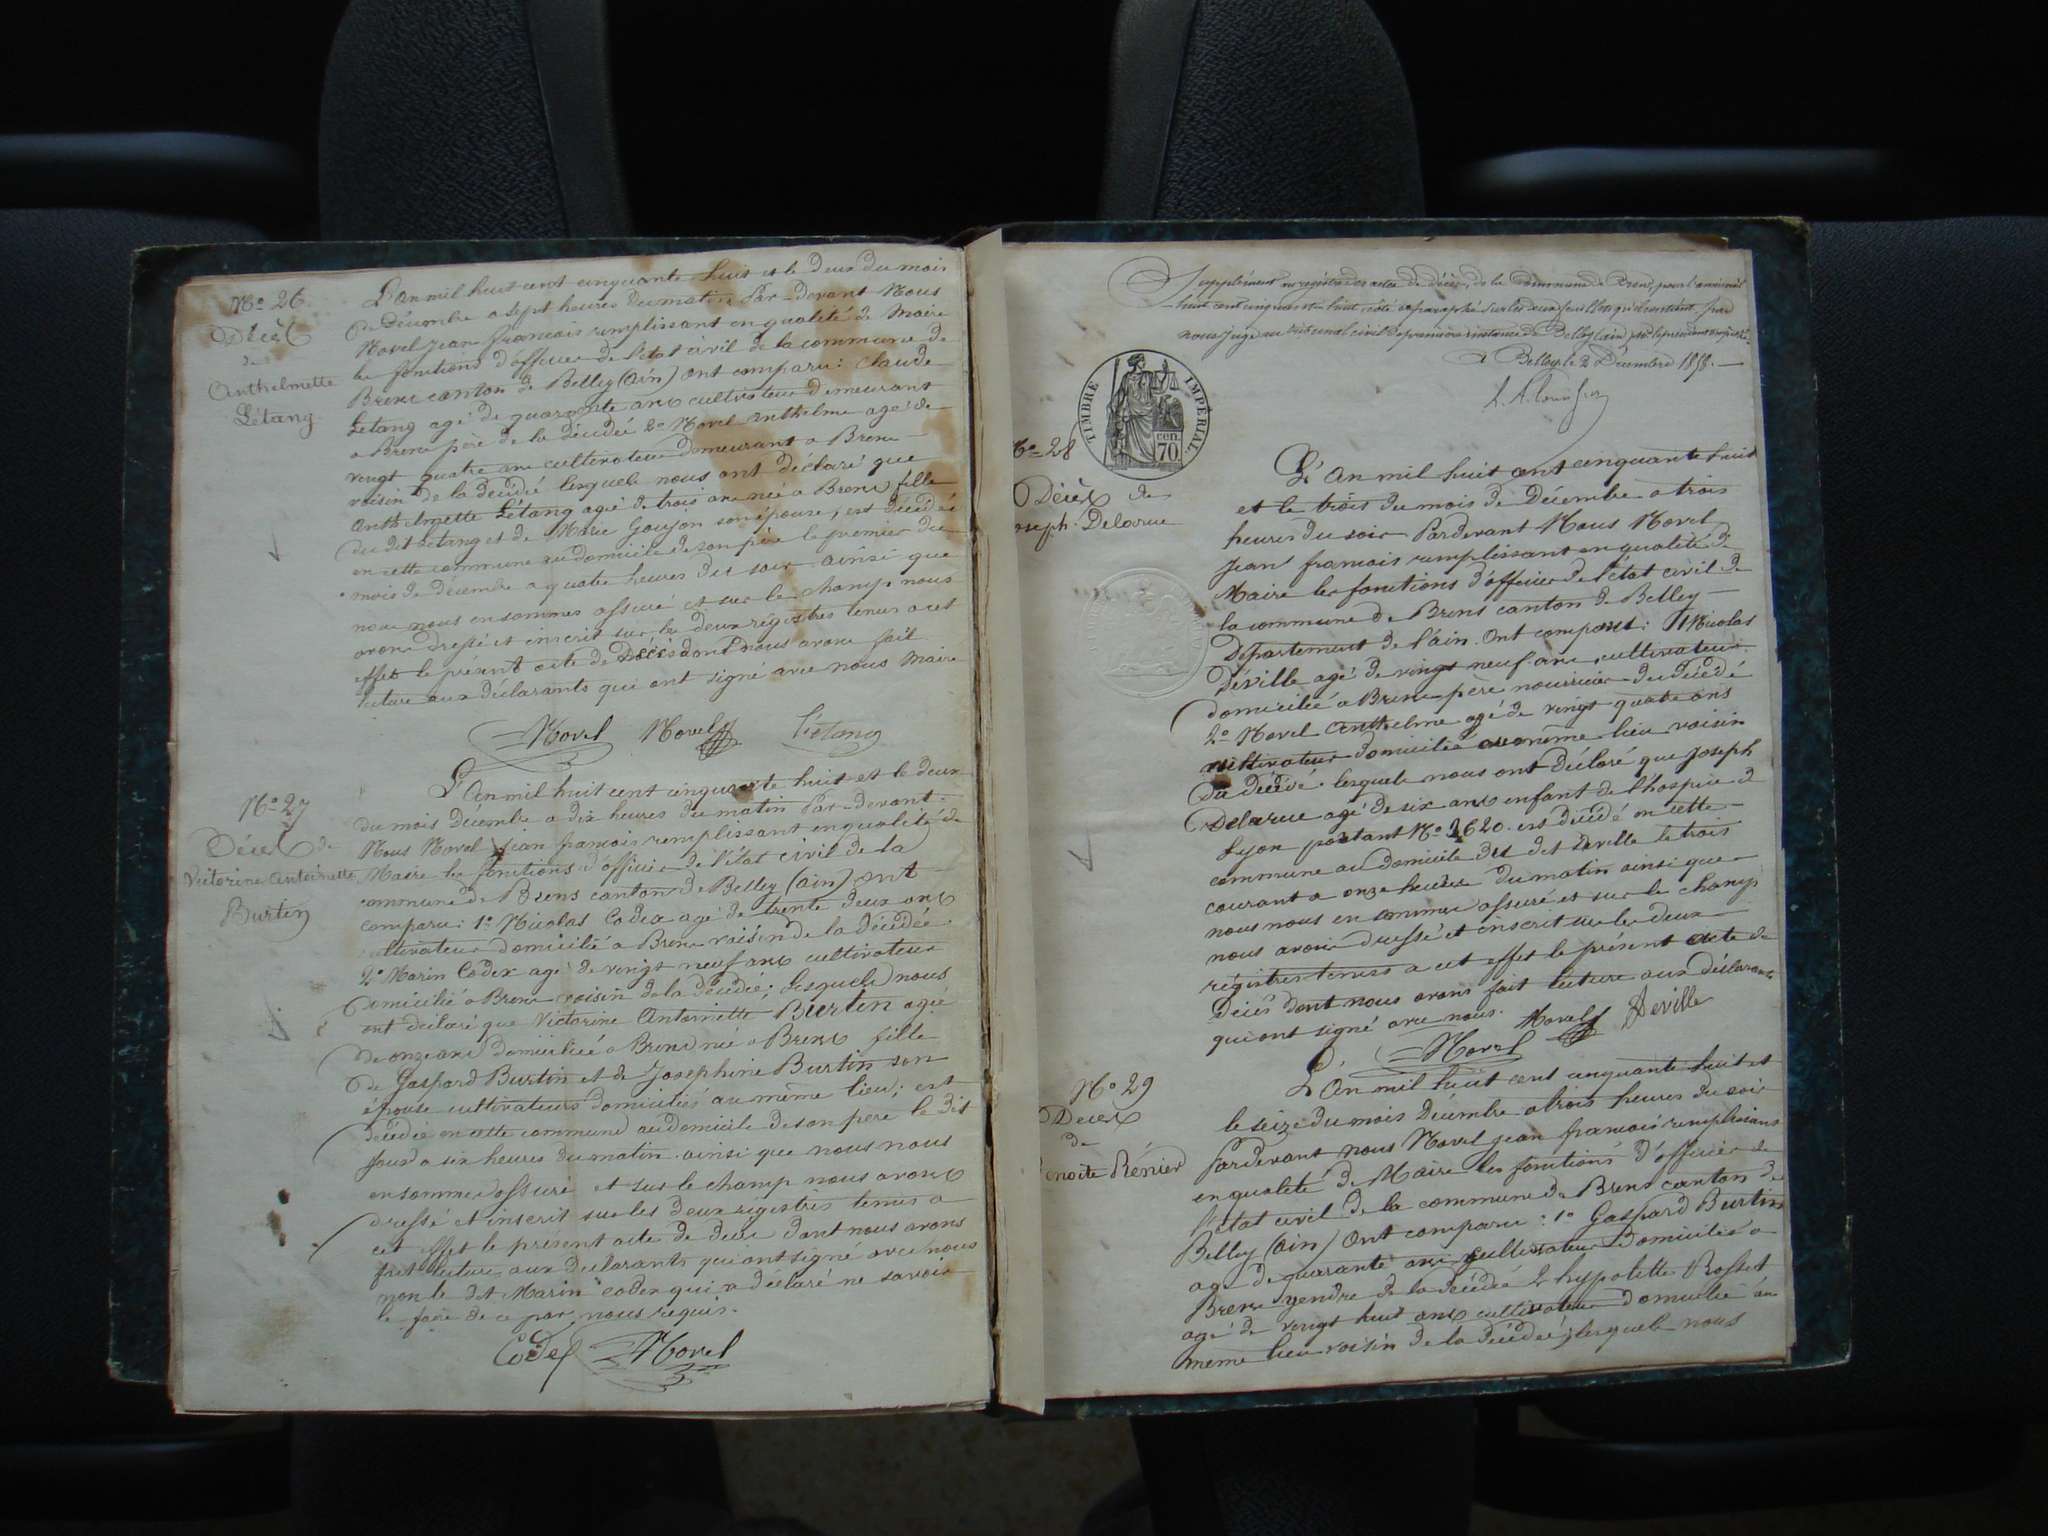 No 26
Décès
de
Anthelmette
Létang
L'An mil huit cent cinquante huit et le deux du mois
de Décembre a sept heures du matin Par-devant Nous
Novel Jean francois remplissant en qualité de Maire
les fonctions d'officier de l'état civil de la commune de
Brens canton de Belley (Ain) ont comparu: Claude
Létang agé de quarante ans cultivateur demeurant
a Brens père de la décédé 2o Novel Anthelme agé de
vingt quatre ans cultivateur demeurant a Brens
voisin de la décédé lesquels nous ont déclaré que
Anthelmette Létang agé de trois ans née a Brens fille
du dit Létang et de Marie Goujon son épouse, est décédé
en cette commune au domicile de son père le premier du
mois de décembre a quatre heures du soir ainsi que
nous nous en sommes assuré et sur le champ nous
avons dressé et inscrit sur les deux régistres tenus a cet
effet le présent acte de Décès dont nous avons fait
lecture aux déclarants qui ont signé avec nous Maire
Novel Novel Létang
No 27
Décès de
Victorine Antoinette
Burtin
L'An mil huit cent cinquante huit et le deux
du mois Décembre a dix heures du matin Par-devant
Nous Novel jean francois remplissant en qualité de
Maire les fonctions d'officier de l'état civil de la
commune de Brens canton de Belley (Ain) ont
comparu: 1o Nicolas Codex agé de trente deux ans
cultivateur domicilié a Brens voisin de la décédée
2o Marin Codex agé de vingt neuf ans cultivateur
domicilié a Brens voisin de la décédée; lesquels nous
ont déclaré que Victorine Antoinette Burtin agée
de onze ans domiciliée a Brens née a Brens fille
de Gaspard Burtin et de Josephine Burtin son
épouse cultivateurs domiciliés au même lieu; est
décédée en cette commune au domicile de son père le dit
jour a six heures du matin. ainsi que nous nous
en sommes assuré et sur le champ nous avons
dressé et inscrit sur les deux régistres tenus a
cet effet le présent acte de décès dont nous avons
fait lecture aux déclarants qui ont signé avec nous
non le dit Marin Codex qui a déclaré ne savoir
le faire de ce par nous requis.
Codex Novel
Supplément au régistre des actes de décès, de la Commune de Brens, pour l'année mil
huit cent cinquante huit, coté et paraphé sur les deux feuilles qui le contient par
nous juge au tribunal civil de première instance de Belley (ain)
a Belley le 2 Décembre 1858.
TIMBRE IMPÉRIAL
cen.
70
No 28
Décès de
oseph Delarue
L'An mil huit cent cinquante huit
et le trois du mois de Décembre a trois
heures du soir Pardevant Nous Novel
Jean francois remplissant en qualité de
Maire les fonctions d'officier de l'état civil de
la commune de Brens canton de Belley
Département de l'ain. Ont comparu: 1o Nicolas
Déville agé de vingt neuf ans cultivateur
domicilié a Brens père nourricier du décédé
2o Novel Anthelme agé de vingt quatre ans
cultivateur domicilié au même lieu voisin
du décédé. lesquels nous ont déclaré que Joseph
Delarue agé de six ans enfant de l'hospice de
Lyon portant No 2620. est décédé en cette
commune au domicile du dit Déville le trois
courant a onze heures du matin ainsi que
nous nous en sommes assuré et sur le champ
nous avons dressé et inscrit sur les deux
régistres tenus a cet effet le présent acte de
Décès dont nous avons fait lecture aux déclarants
qui ont signé avec nous. Novel Déville
Novel
No 29
Décès
de
enoite Rénier
L'An mil huit cent cinquante huit et
le seize du mois Décembre a trois heures du soir
Pardevant nous Novel jean francois remplissant
en qualité de Maire les fonctions d'officier de
l'état civil de la commune de Brens canton de
Belley (Ain) Ont comparu: 1o Gaspard Burtin
agé de quarante ans cultivateur domicilié a
Brens gendre de la décédé 2o hypolitte Rosset
agé de vingt huit ans cultivateur domicilié au
même lieu voisin de la décédée; lesquels nous